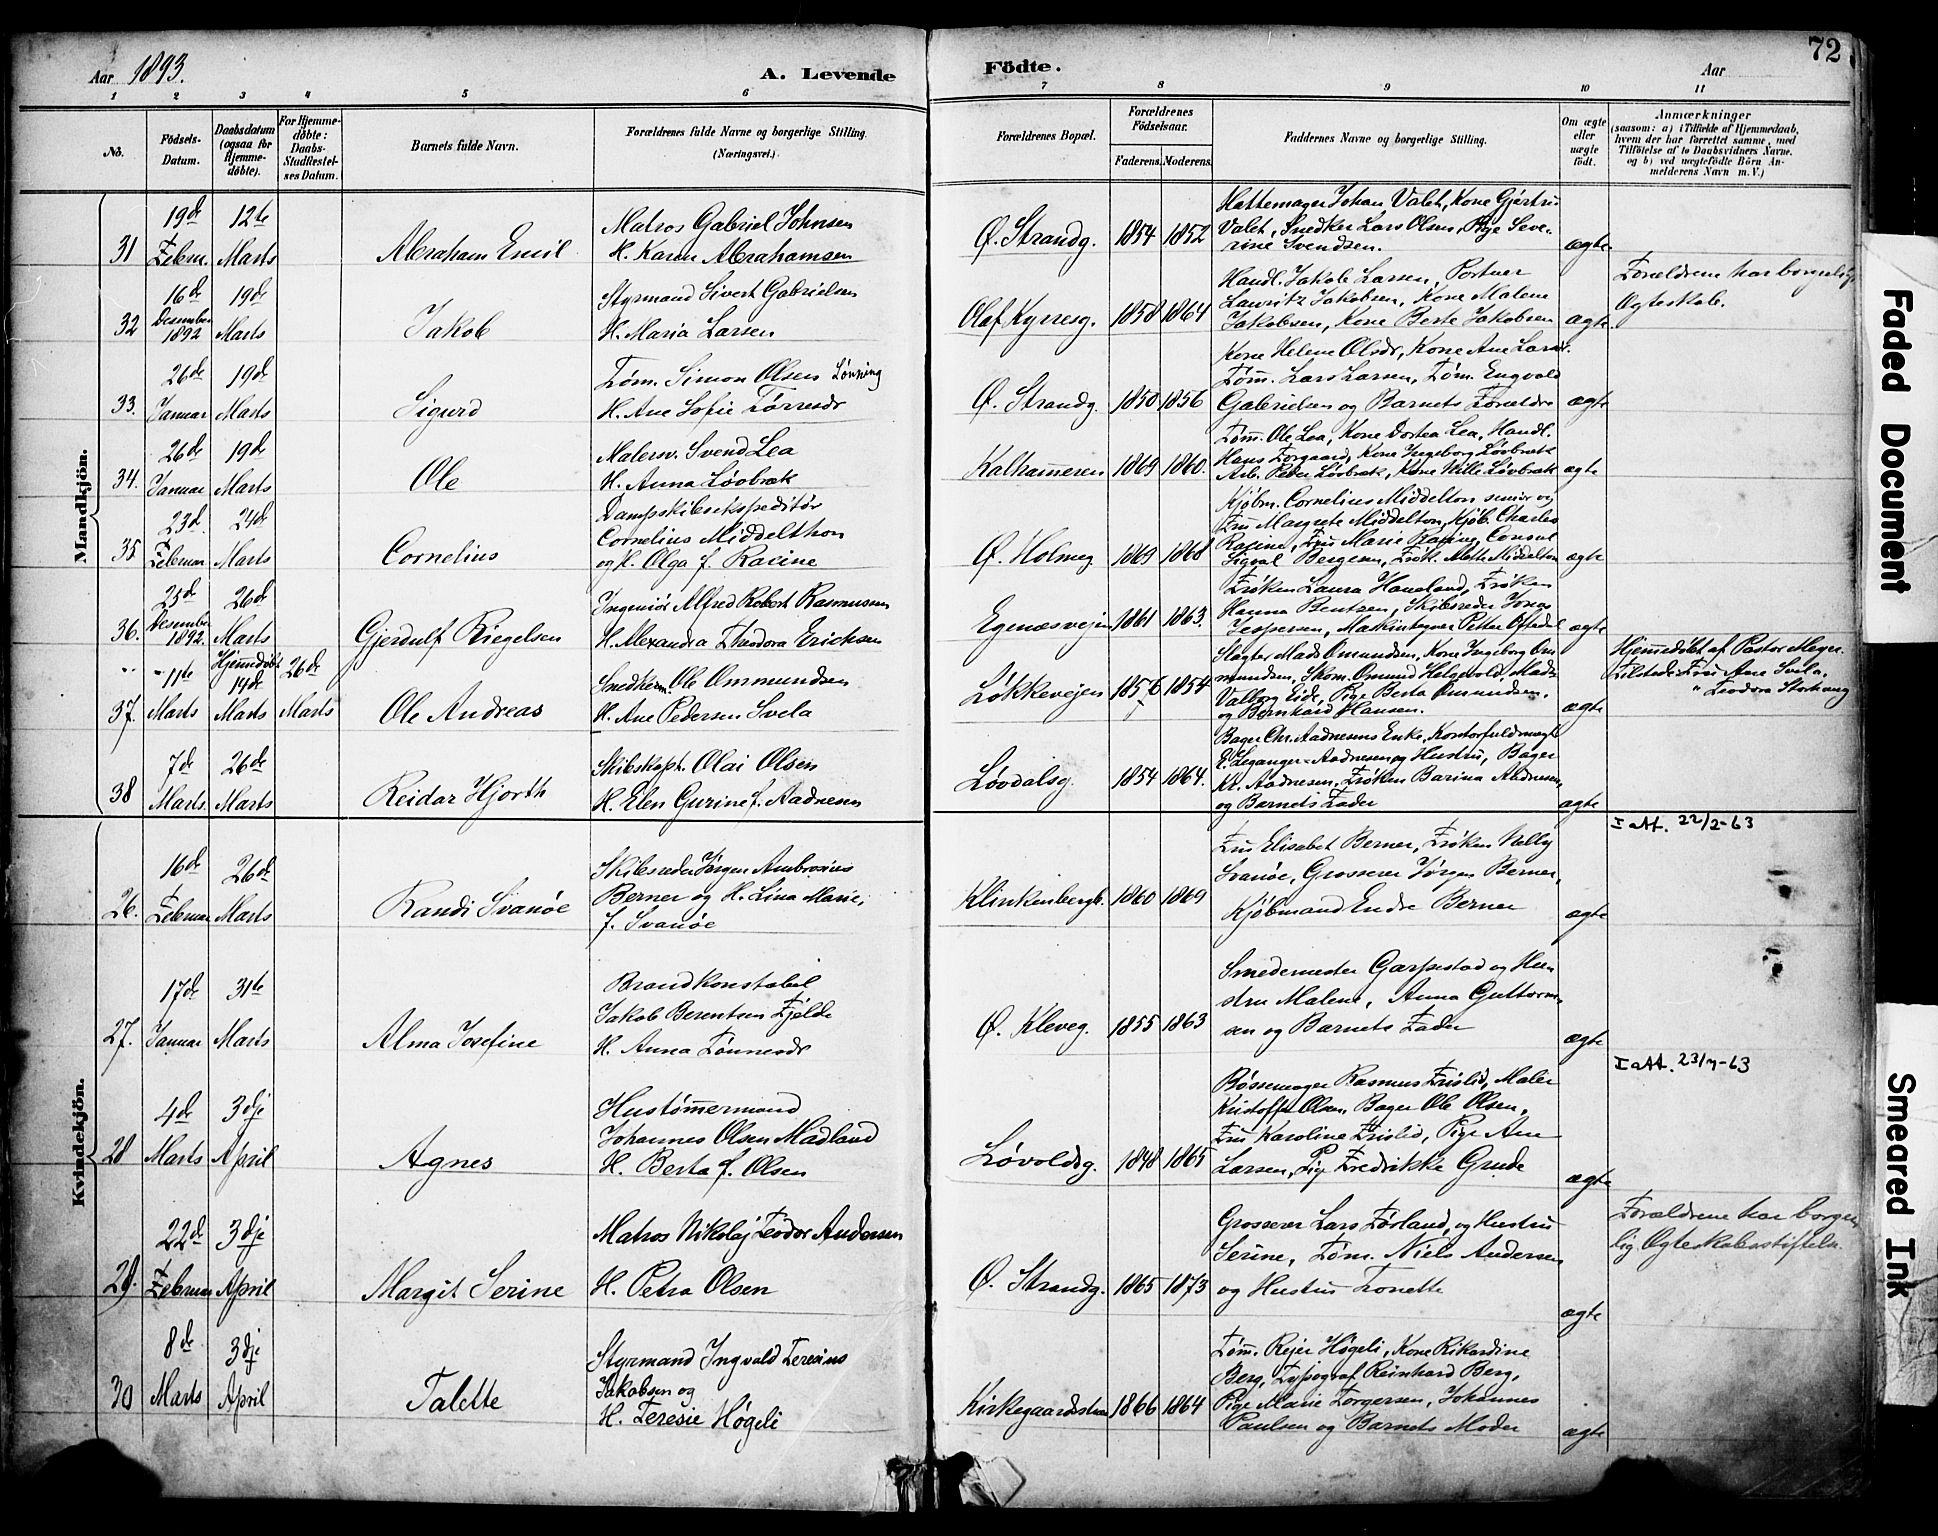 Aar 1893.
A. Levende
Födte.
Aar
72
1
2
3
4
5
6
7
8
9
10
11
No.
Födsels-
Datum.
Daabsdatum
(ogsaa for
Hjemme-
døbte).
For Hjemme-
døbte:
Daabs-
Stadfæstel-
ses Datum.
Barnets fulde Navn.
Forældrenes fulde Navne og borgerlige Stilling.
(Næringsvei.)
Forældrenes Bopæl.
Forældrenes
Födselsaar.
Faderens.
Moderens.
Faddernes Navne og borgerlige Stilling.
Om ægte
eller
uægte
født.
Anmærkninger
(saasom: a) i Tilfælde af Hjemmedaab,
hvem der har forrettet samme, med
Tilføielse af to Daabsvidners Navne.
og b) ved uægtefødte Børn An-
melderens Navn m. V.)
Mandkjön.
31
19de Februar
12te Marts
Abraham Emil
Matros Gabriel Johnsen
H. Karen Abrahamsen
Ø. Strandg.
1854
1852
Hattemager Johan Valet, Kone Gjertru
Valet, Snedker Lars Olsen, Pige Seve-
rine Svendsen.
ægte
32
16de Desember 1892
19de Marts
Jakob
Styrmand Sivert Gabrielsen
H. Maria Larsen
Olaf Kyrresg.
1858
1864
Handl. Jakob Larsen, Portner
Lauritz Jakobsen, Kone Malene
Jakobsen, Kone Berte Jakobsen
ægte.
Forældrene har borgerlig
Ægteskab.
33.
26de Januar
19de Marts
Sigurd
Tøm. Simon Olsen Lønning
H. Ane Sofie Tørresdr
Ø. Strandg.
1850
1856
Kone Helene Olsdr, Kone Ane Larsdr.
Tøm. Lars Larsen, Tøm. Engvald
Gabrielsen og Barnets Forældre
ægte
34.
26de Januar
19de Marts
Ole
Malersv. Svend Lea
H. Anna Løvbræk
Kalhammeren
1869
1860.
Tøm. Ole Lea, Kone Dortea Lea, Handl.
Hans Torgaard, Kone Ingeborg Løvbræk
Arb. Peder Løvbræk, Kone Wille Løvbræk
ægte
35
23d Februar
24de Marts
Cornelius
Dampskibsekspeditør
Cornelius Middelthon
og H. Olga f. Racine
Ø. Holmeg.
1869
1868
Kjøbm. Cornelius Middelton senior og
Fru Margrete Middelton, Kjøb. Charles
Racine, Fru Marie Racine, Consul
Sigval Bergesen, Frøk. Meth. Middelton
ægte
36.
25de Desember 1892.
26de Marts
Gjerdulf Riegelsen
Ingeniør Alfred Robert Rasmussen
H. Alexandra Theodora Erichsen
Egenæsveien
1861
1863.
Frøken Laura Haaland, Frøken
Hanna Bentsen, Skibsreder Jonas
Jespersen, Maskintegner Petter Oftedal
ægte
37.
11te Marts
Hjemmedøbt 14de Marts
26de Marts
Ole Andreas
Snedkerm. Ole Ommundsen
H. Ane Pedersen Svela
Løkkeveien
1856
1854
Slagter Mads Omundsen, Kone Ingeborg Om
mundsen, Skom. Omund Helgevold, Mads
Valborg Eide, Pige Berta Omundsen,
og Bernhard Hansen.
ægte
Hjemmedøbt af Pastor Meyer.
Tilstede: Fru Ane Svela,
" Teodora Stokvang
38
7de Marts.
26de Marts
Reidar Hjorth
Skibskapt. Olai Olsen
H. Elen Gurine f. Aadnesen
Løvdalsg.
1854
1864.
Bager Chr. Aadnesens Enke, Kontorfuldmægt.
E. Leganger-Aadnesen og Hustru, Bager
Kr. Aadnesen, Frøken Barina Aadnesen,
og Barnets Fader
ægte
Kvindekjön.
26.
16de Februar
26de Marts
Randi Svanöe
Skibsreder Jørgen Ambrosius
Berner og H. Lina Marie,
f. Svanöe
Klinkenbergb.
1860
1869
Fru Elisabet Berner, Frøken Nelly
Svanöe, Grosserer Jörgen Berner,
Kjøbmand Endre Berner
ægte
I att. 22/2-63
27.
17de Januar
31te Marts
Alma Josefine
Brandkonstabel
Jakob Berentsen Fjelde
H. Anna Tønnesdr
Ø. Kleveg.
1855
1863
Smedemester Garpestad og Hu-
stru Malene, Anna Guttorm-
sen og Barnets Fader
ægte
28
4de Marts
3dje April
Agnes
Hustømmermand
Johannes Olsen Madland
H. Berta f. Olsen
Løvoldsg.
1848
1865
Bøssemager Rasmus Fristid, Maler
Kristoffer Olsen, Bager Ole Olsen,
Fru Karoline Fristid, Pige Ane
Larsen, Pig Fredrikke Grude
ægte
I att. 23/7-63
29.
22de Februar
3dje April
Margit Serine
Matros Nikolaj Teodor Andersen
H. Petra Olsen
Ø. Strandg.
1865
1873
Grosserer Lars Førland, og Hustru
Serine, Tøm. Niels Andersen
og Hustru Tonette
ægte
Forældrene har borger
lig Ægteskabsstiftelse.
30
8de Marts
3dje April
Talette
Styrmand Ingvald Teresius
Jakobsen og
H. Teresie Høgeli
Kirkegaardsstræ
1866
1864
Tøm. Rejer Høgeli, Kone Rikardine
Berg, Typograf Reinhard Berg,
Pige Marie Torgersen, Johannes
Paulsen og Barnets Moder
ægte
Faded Document
Smeared Ink